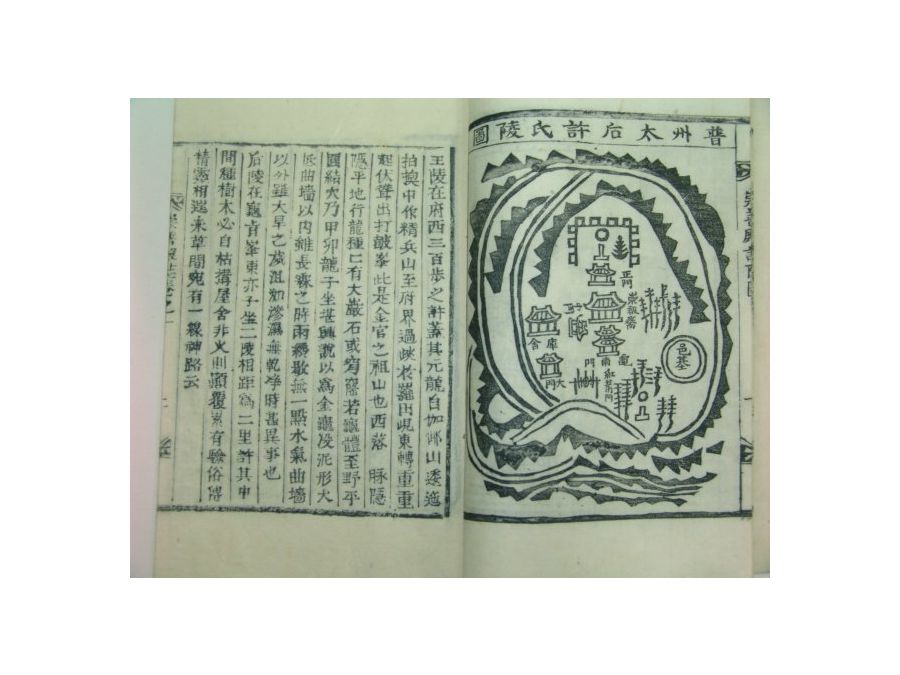 普州太后許氏陵圖
正門
崇報齋
庫
舍
大門
門
紅箭門
邑基
王陵在府西三百步之許蓋其元龍自伽倻山逶迤
拍換中作精兵山至府界過峽於羅田峴東轉重重
起伏聳出打鼓峯此是金官之祖山也西落一脉隱
隱平地行龍種種有大巖石或穹窿若龜體至野平
圓結穴乃甲卯龍子坐堪輿說以爲金龜沒泥形大
抵曲墻以內雖長霖之時雨纔歇無一點水氣曲墻
以外雖大旱之歲沮洳滲濕無乾淨時甚異事也
后陵在龜旨峯東亦子坐二陵相距爲二里許其中
間種樹木必自枯搆屋舍非火則頹覆累有驗俗傳
精靈相遊來草間宛有一線神路云